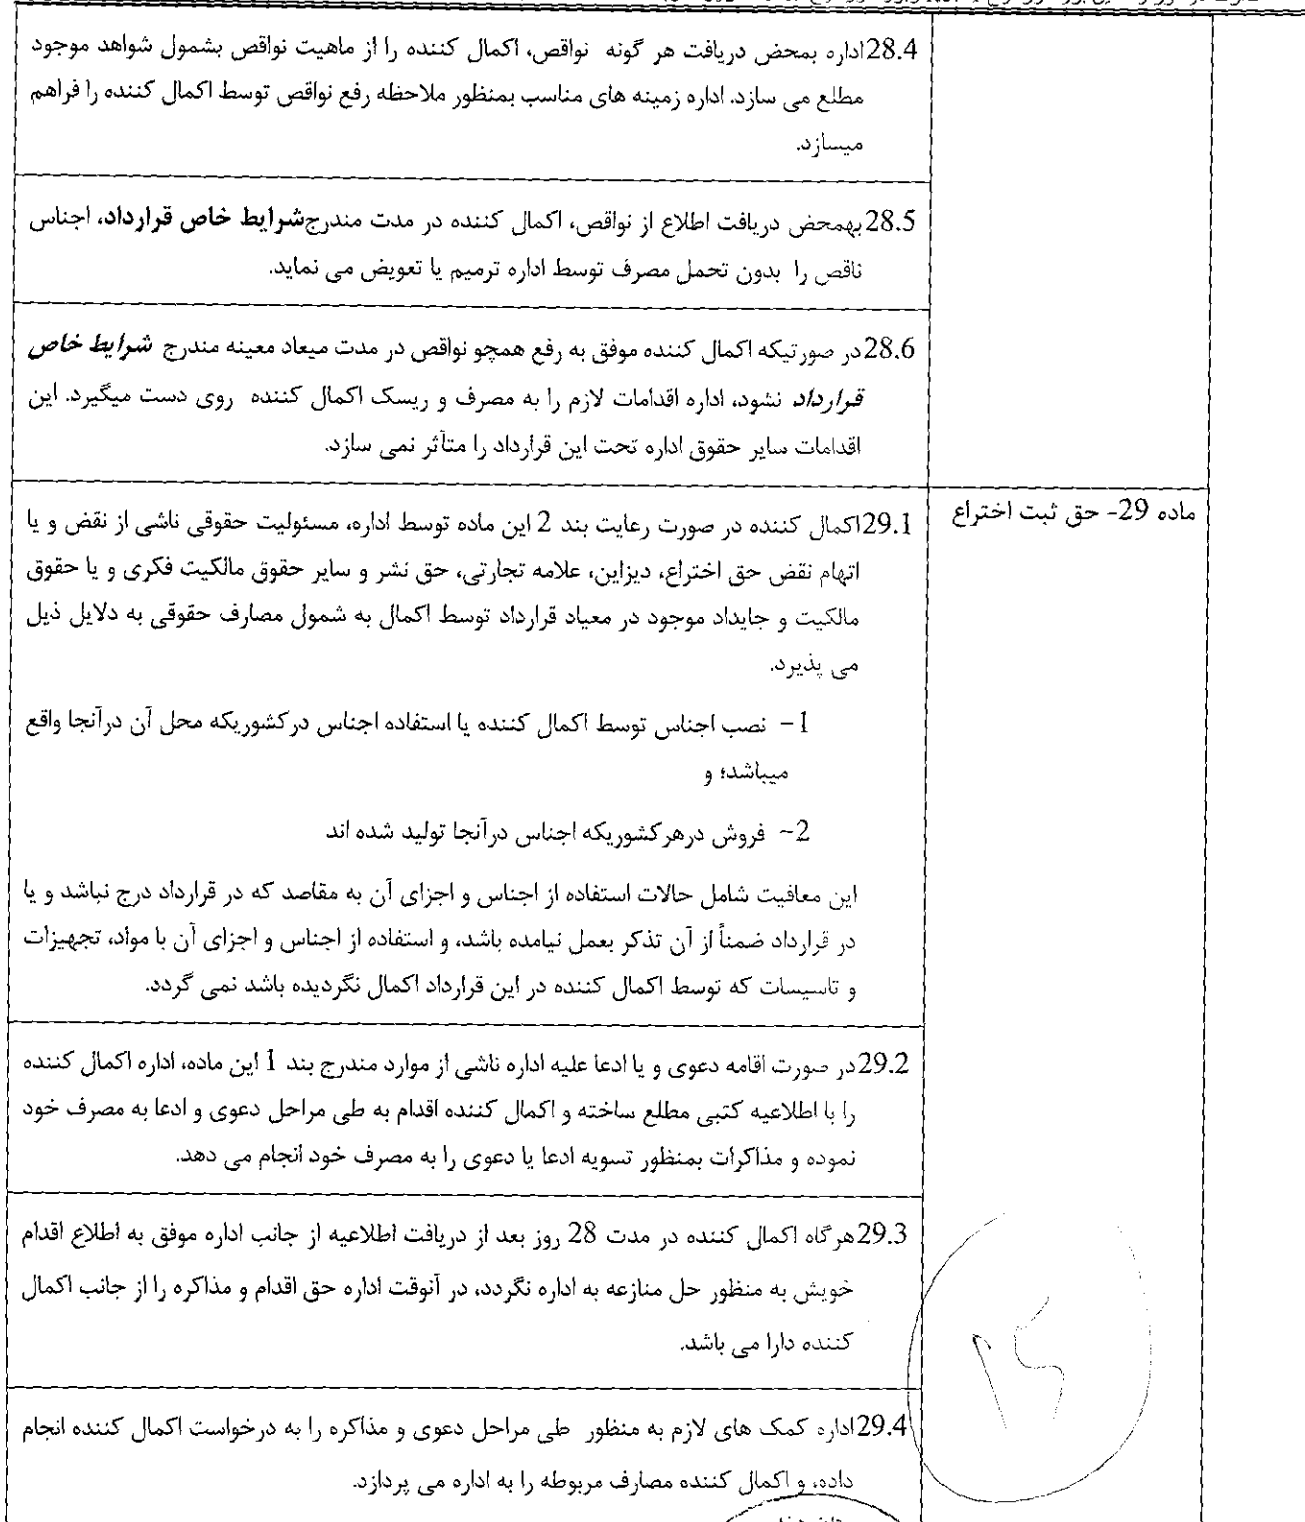 28.4اداره بمحض دریافت هر گونه نواقص، اکمال کننده را از ماهیت نواقص بشمول شواهد موجود
مطلع می سازد. اداره زمینه های مناسب بمنظور ملاحظه رفع نواقص توسط اکمال کننده را فراهم
میسازد.
28.5بهمحض دریافت اطلاع از نواقص، اکمال کننده در مدت مندرجشرایط خاص قرارداد، اجناس
ناقص را بدون تحمل مصرف توسط اداره ترمیم یا تعویض می نماید.
28.6در صورتیکه اکمال کننده موفق به رفع همچو نواقص در مدت میعاد معینه مندرج شرایط خاص
قرارداد نشود، اداره اقدامات لازم را به مصرف و ریسک اکمال کننده روی دست میگیرد. این
اقدامات سایر حقوق اداره تحت این قرارداد را متأثر نمی سازد.
ماده 29- حق ثبت اختراع
29.1اکمال کننده در صورت رعایت بند 2 این ماده توسط اداره، مسئولیت حقوقی ناشی از نقض و یا
اتهام نقض حق اختراع، دیزاین، علامه تجارتی، حق نشر و سایر حقوق مالکیت فکری و یا حقوق
مالکیت و جایداد موجود در معیاد قرارداد توسط اکمال به شمول مصارف حقوقی به دلایل ذیل
می پذیرد.
1- نصب اجناس توسط اکمال کننده یا استفاده اجناس درکشوریکه محل آن درآنجا واقع
میباشد؛ و
2- فروش درهرکشوریکه اجناس درآنجا تولید شده اند
این معافیت شامل حالات استفاده از اجناس و اجزای آن به مقاصد که در قرارداد درج نباشد و یا
در قرارداد ضمناً از آن تذکر بعمل نیامده باشد، و استفاده از اجناس و اجزای آن با مواد، تجهیزات
و تاسیسات که توسط اکمال کننده در این قرارداد اکمال نگردیده باشد نمی گردد.
29.2در صورت اقامه دعوی و یا ادعا علیه اداره ناشی از موارد مندرج بند 1 این ماده، اداره اکمال کننده
را با اطلاعیه کتبی مطلع ساخته و اکمال کننده اقدام به طی مراحل دعوی و ادعا به مصرف خود
نموده و مذاکرات بمنظور تسویه ادعا یا دعوی را به مصرف خود انجام می دهد.
29.3هرگاه اکمال کننده در مدت 28 روز بعد از دریافت اطلاعیه از جانب اداره موفق به اطلاع اقدام
خویش به منظور حل منازعه به اداره نگردد، در آنوقت اداره حق اقدام و مذاکره را از جانب اکمال
کننده دارا می باشد.
29.4اداره کمک های لازم به منظور طی مراحل دعوی و مذاکره را به درخواست اکمال کننده انجام
داده، و اکمال کننده مصارف مربوطه را به اداره می پردازد.